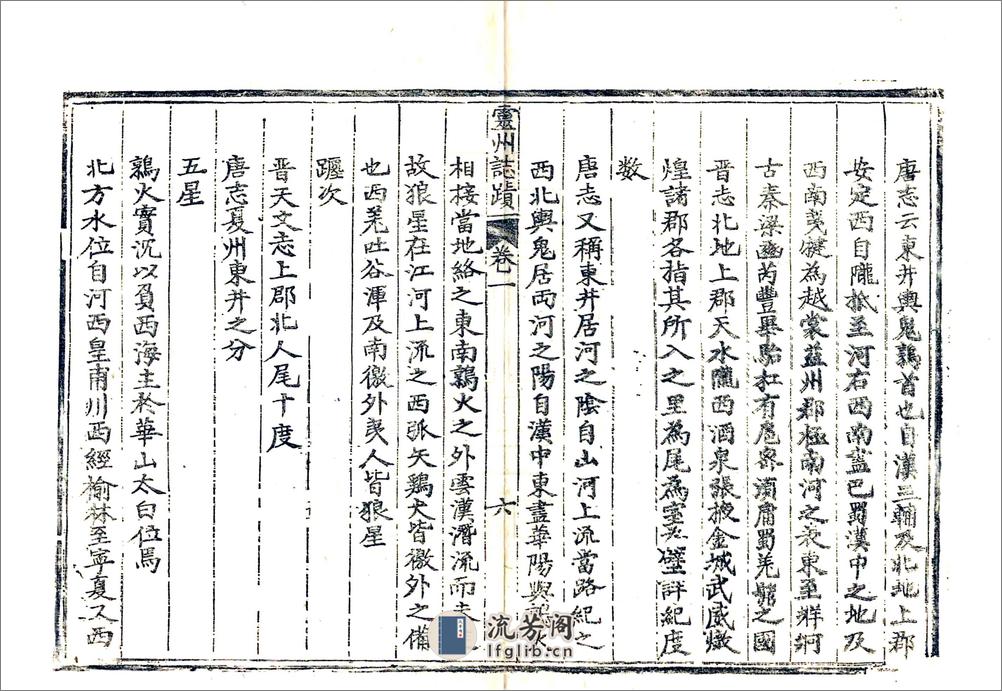 唐志云東井輿鬼鶉首也自漢三輔及北地上郡
安定西自隴抵至河右西南盡巴蜀漢中之地及
西南夷犍為越裳益州郡極南河之表東至牂牁
古秦梁豳芮豐畢駘杠有扈密須庸蜀羌髳之國
晉志北地上郡天水隴西酒泉張掖金城武威燉
煌諸郡各指其所入之里為尾為室為壁詳紀度
数
唐志又稱東井居河之陰自山河上流當路紀之
西北輿鬼居両河之陽自漢中東盡華陽與鶉火
靈州誌蹟 卷一 六
相接當地絡之東南鶉火之外雲漢潛流而未
故狼星在江河上流之西弧矢鷄犬皆徼外之備
也西羌吐谷渾及南徼外夷人皆狼星
躔次
晋天文志上郡北人尾十度
唐志夏州東井之分
五星
鶉火實沉以負西海主於華山太白位焉
北方水位自河西皇甫川西經榆林至寧夏又西
流芳阁
lfglib.cn